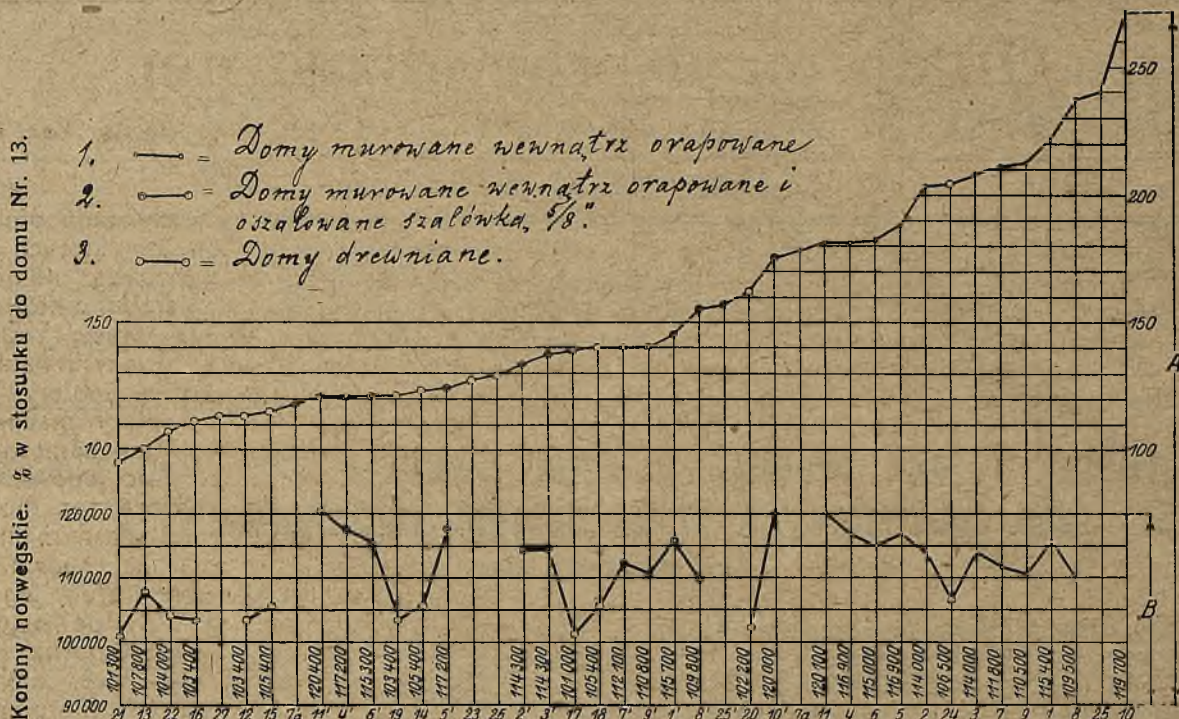 Korony norwegskie. % w stosunku do domu Nr. 13.
1. = Domy murowane wewnątrz orapowane
2. = Domy murowane wewnątrz orapowane i
oszalowane szalówką 5/8".
3. = Domy drewniane.
250
200
150
100
A
150
100
120 000
110 000
100 000
90 000
B
101 300 107 800 104 000 103 400 103 400 105 400 120 400 117 200 115 300 103 400 105 400 117 200 114 300 114 300 101 000 105 400 112 100 110 800 115 700 109 800 102 200 120 000 120 100 116 900 115 000 116 900 114 000 106 500 114 000 111 800 110 500 115 400 109 500 119 700
21 13 22 16 27 12 15 7a 11' 4' 6' 19 14 5' 23 26 2' 3' 17 18 7' 9' 1' 8' 25' 20 10' 7a 11 4 6 5 2 24 3 7 9 1 8 25 10